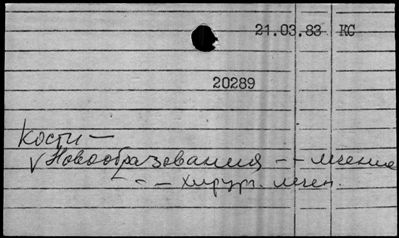 21.03.83 КС
20289
Кости —
√ Новообразования -- лечение
-- хирург. лечен.